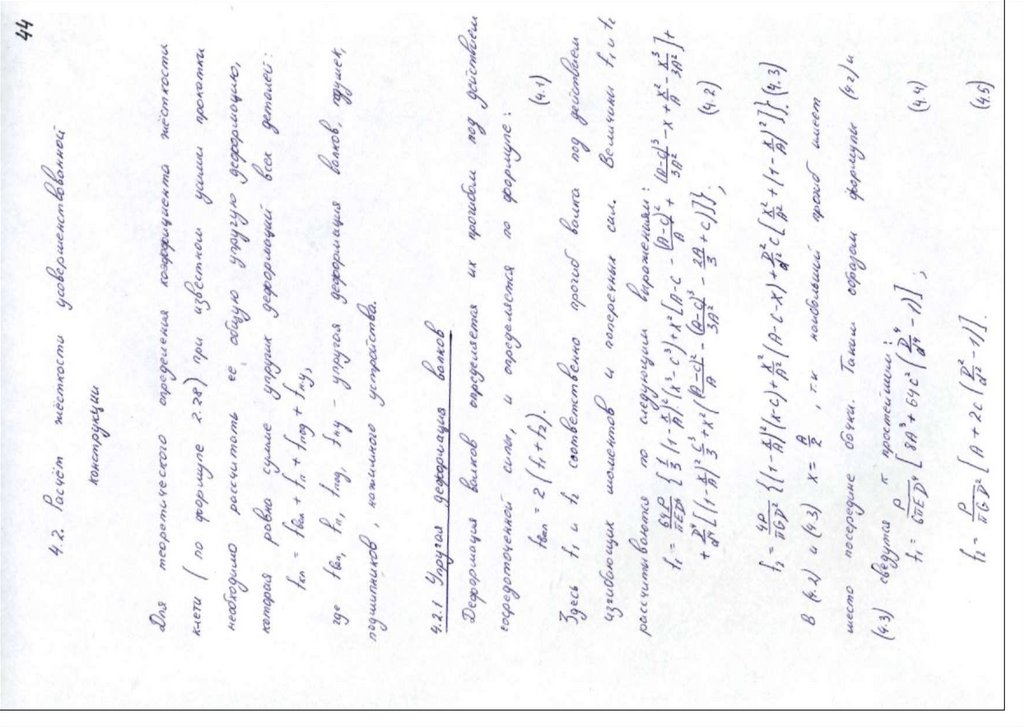 44
4.2. Расчёт жёсткости усовершенствованной
конструкции
Для теоретического определения коэффициента жёсткости
клети (по формуле 2.28) при известном усилии прокатки
необходимо рассчитать её общую упругую деформацию,
которая равна сумме упругих деформаций всех деталей:
fкл = fвал + fп + fпод + fну,
где fвал, fп, fпод, fну - упругая деформация валков,
подшипников, нажимного устройства.
4.2.1 Упругая деформация валков
Деформация валков определяется их прогибом под действием
сосредоточенной силы, и определяется по формуле:
fвал = 2(f₁ + f₂). (4.1)
Здесь f₁ и f₂ соответственно прогиб валка под действием
изгибающих моментов и поперечных сил. Величины f₁ и f₂
рассчитываются по следующим выражениям:
f₁ = 64P/πED⁴ {1/3 (1 - x/A)² (x³ - c³) + x² [A - c - (A-c)²/A + (A-c)³/3A² - x + x²/A - x³/3A²] +
+ D⁴/d⁴ [(1 - x/A)² c³/3 + x² ((A-c)²/A - (A-c)³/3A² - 2A/3 + c)]}, (4.2)
f₂ = 4P/πGD² {(1 - x/A)² (x - c) + x²/A² (A - c - x) + D²/d² c [x²/A² + (1 - x/A)²]}. (4.3)
В (4.2) и (4.3) x = A/2, т.к наибольший прогиб имеет
место посередине бочки. Таким образом формулы (4.2) и
(4.3) сведутся к простейшим:
f₁ = P/6πED⁴ [8A³ + 64c³ (D⁴/d⁴ - 1)], (4.4)
f₂ = P/πGD² [A + 2c (D²/d² - 1)]. (4.5)